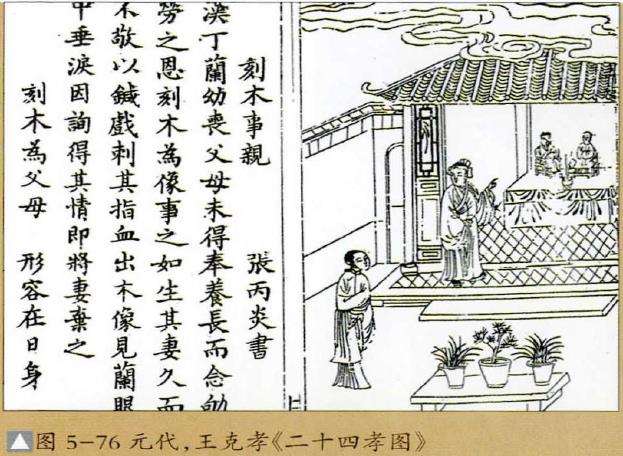 刻木事親 張丙炎書
漢丁蘭幼喪父母未得奉養長而念劬
勞之恩刻木為像事之如生其妻久而
不敬以鍼戲刺其指血出木像見蘭眼
中垂淚因詢得其情即將妻棄之
刻木為父母 形容在日身
图 5-76 元代,王克孝《二十四孝图》